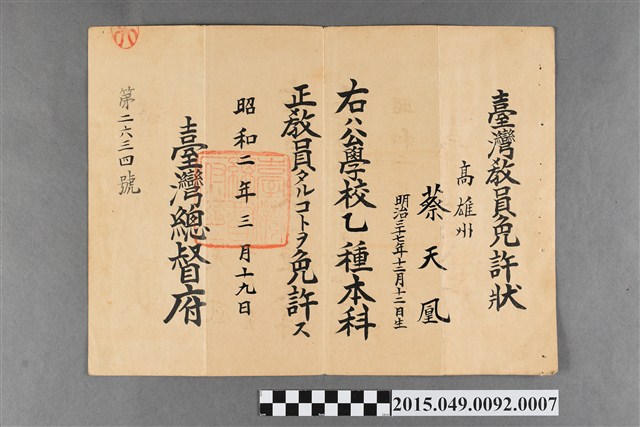 臺灣教員免許狀
高雄州
蔡天凰
明治三十七年十二月十二日生
右ハ公學校乙種本科
正教員タルコトヲ免許ス
昭和二年三月十九日
臺灣總督府
第二六三四號
2015.049.0092.0007